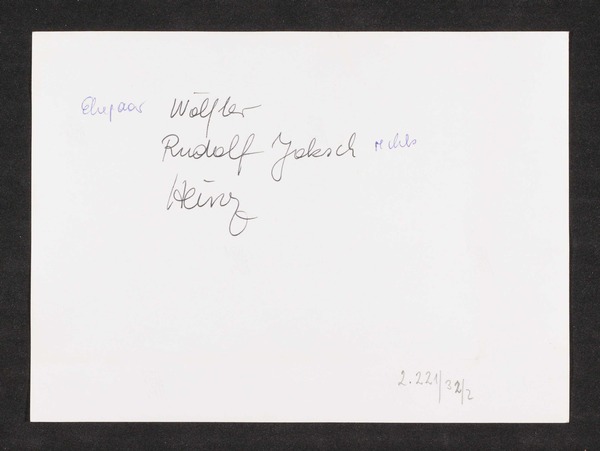 Ehepaar Wölfler
Rudolf Jaksch rechts
Heinz
2.221/32/2